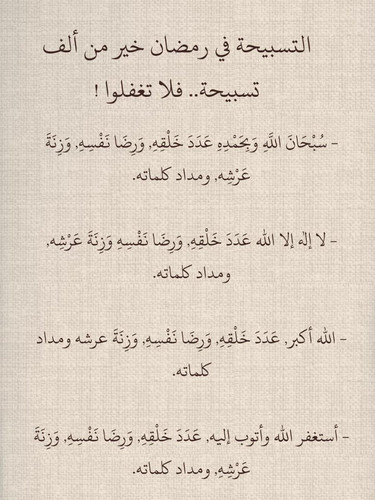 التسبيحة في رمضان خير من ألف
تسبيحة.. فلا تغفلوا !
- سُبْحَانَ اللَّهِ وَبِحَمْدِهِ عَدَدَ خَلْقِهِ, وَرِضَا نَفْسِهِ, وَزِنَةَ
عَرْشِه, ومداد كلماته.
- لا إله إلا الله عَدَدَ خَلْقِهِ, وَرِضَا نَفْسِهِ وَزِنَةَ عَرْشِه,
ومداد كلماته.
- الله أكبر, عَدَدَ خَلْقِهِ, وَرِضَا نَفْسِهِ, وَزِنَةَ عرشه ومداد
كلماته.
- أستغفر الله وأتوب إليه, عَدَدَ خَلْقِهِ, وَرِضَا نَفْسِهِ, وَزِنَةَ
عَرْشِهِ, ومداد كلماته.